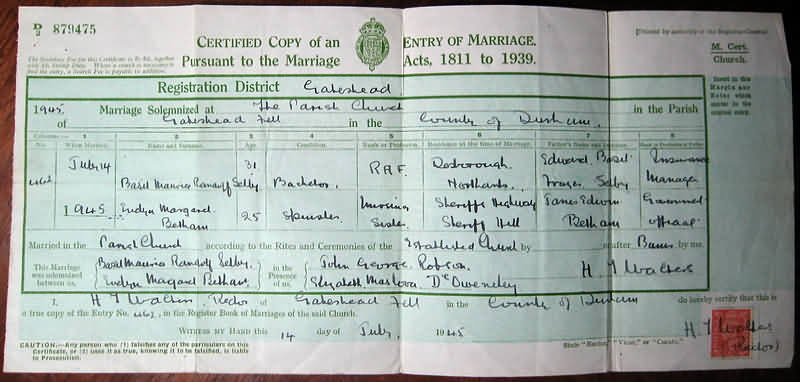 D/2 879475
CERTIFIED COPY of an ENTRY OF MARRIAGE.
Pursuant to the Marriage Acts, 1811 to 1939.
Printed by authority of the Registrar-General
M. Cert.
Church.
Insert in this
Margin any
Notes which
occur in the
original entry.
Registration District Gateshead
1945. Marriage Solemnized at The Parish Church in the Parish
of Gateshead Fell in the County of Durham.
Columns:— 1 2 3 4 5 6 7 8
No. When Married. Name and Surname. Age. Condition. Rank or Profession. Residence at the time of Marriage. Father's Name and Surname.
July 14 1945
Basil Maurice Selby 31 Bachelor. R.A.F. Northants. Edward Basil Selby Insurance Manager
Evelyn Margaret Betham 25 Spinster. Nursing Sister. Sheriffs Highway Sheriff Hill James Edwin Betham Government official
Married in the Parish Church according to the Rites and Ceremonies of the Established Church by or after Banns by me.
This Marriage was solemnized between us, Basil Maurice Selby. Evelyn Margaret Betham in the Presence of us. John George Robson. Elizabeth H J Walters
I, H J Walters, Rector of Gateshead Fell in the County of Durham do hereby certify that this is
a true copy of the Entry No. in the Register Book of Marriages of the said Church.
WITNESS MY HAND this 14 day of July, 1945
H. J Walters
(Rector)
CAUTION.—Any person who (1) falsifies any of the particulars on this
Certificate, or (2) uses it as true, knowing it to be falsified, is liable
to Prosecution.
State "Rector," "Vicar," or "Curate."